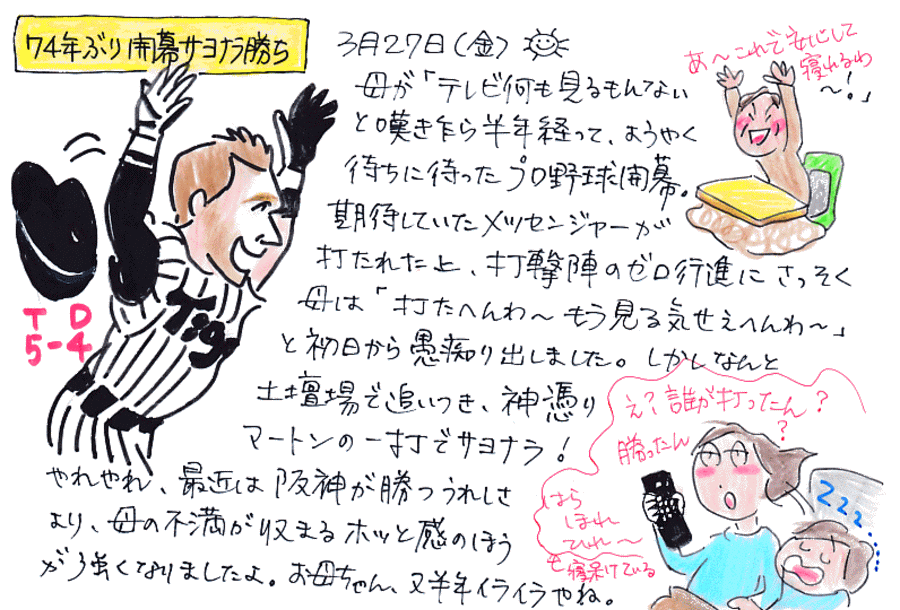 74年ぶり開幕サヨナラ勝ち
3月27日(金)
母が「テレビ何も見るもんてない
と嘆き乍ら半年経って、ようやく
待ちに待ったプロ野球開幕。
期待していたメッセンジャーが
打たれた上、打撃陣のゼロ行進にさっそく
母は「打たへんわ〜もう見る気せえへんわ〜」
と初日から愚痴り出しました。しかしなんと
土壇場で追いつき、神憑り
マートンの一打でサヨナラ!
やれやれ、最近は阪神が勝つうれしさ
より、母の不満が収まるホッと感のほう
が強くなりましたよ。お母ちゃん、又半年イライラやね。
あ〜これで安心して
寝れるわ
〜!」
T D
5-4
T
9
え?誰が打ったん?
?
勝ったん
はら
ほれ
ひれ〜
も寝呆けている
Z z z